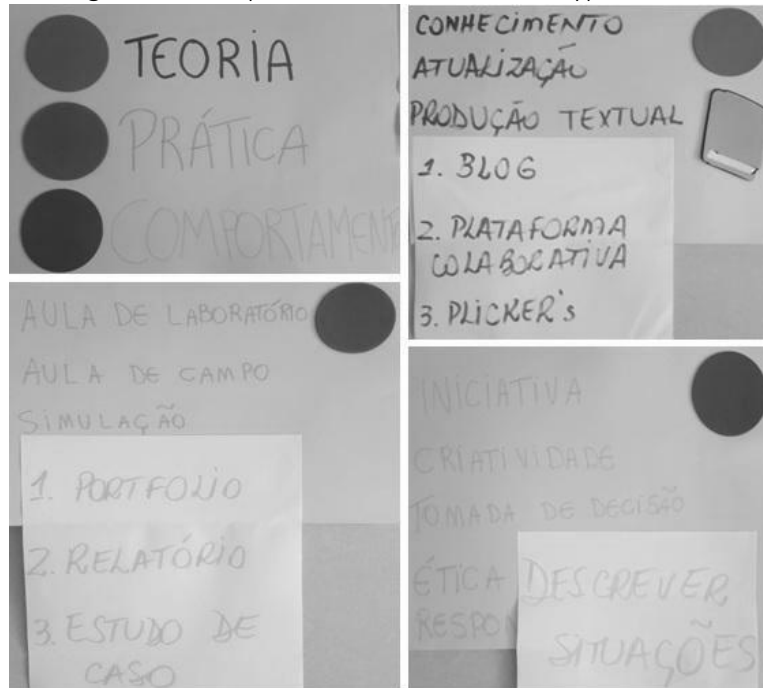 TEORIA
PRÁTICA
COMPORTAMEN
CONHECIMENTO
ATUALIZAÇÃO
PRODUÇÃO TEXTUAL
1. BLOG
2. PLATAFORMA
COLABORATIVA
3. PLICKER's
AULA DE LABORATÓRIO
AULA DE CAMPO
SIMULAÇÃO
1. PORTFOLIO
2. RELATÓRIO
3. ESTUDO DE
CASO
INICIATIVA
CRIATIVIDADE
TOMADA DE DECISÃO
ÉTICA
RESPON
DESCREVER
SITUAÇÕES